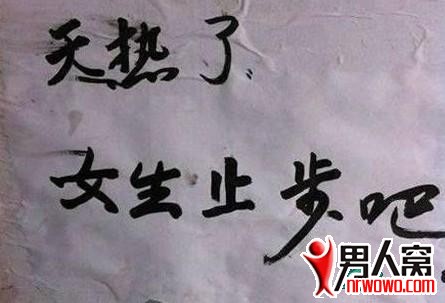 天热了
女生止步吧
男人窝
nrwowo.com